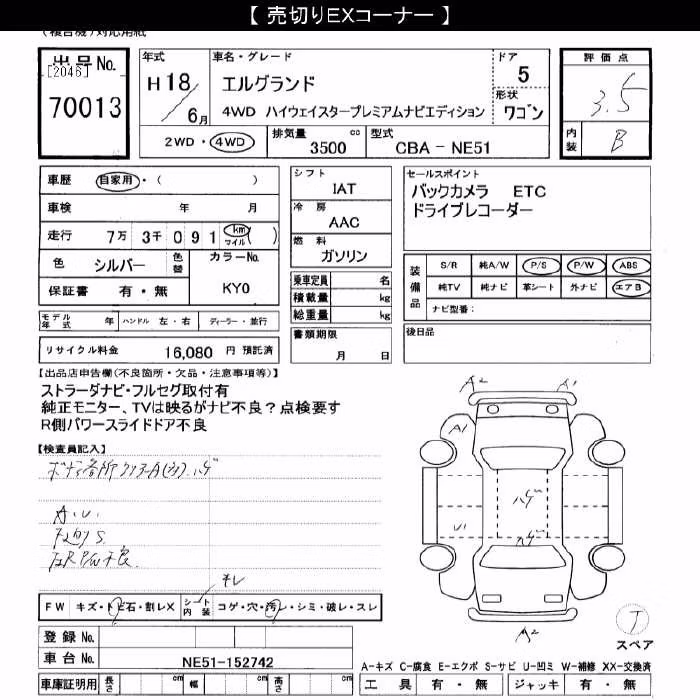 【 売切りEXコーナー 】
(複合機)対応用紙
出品No.
[2046]
70013
年式
H18/6月
車名・グレード
エルグランド
4WD ハイウェイスタープレミアムナビエディション
ドア
5
形状
ワゴン
2WD・4WD
排気量
3500 cc
型式
CBA - NE51
評価点
3.5
内装
B
車歴 自家用・( )
車検 年 月
走行 7万 3千 0 9 1 km マイル ( )
色 シルバー 色替
カラーNo.
KY0
保証書 有・無
モデル年式 年 ハンドル 左・右 ディーラー・並行
リサイクル料金 16,080 円 預託済
シフト
IAT
冷房
AAC
燃料
ガソリン
乗車定員 名
積載量 kg
総重量 kg
書類期限
月 日
セールスポイント
バックカメラ ETC
ドライブレコーダー
装備品
S/R 純A/W P/S P/W ABS
純TV 純ナビ 革シート 外ナビ エアB
ナビ型番:
後日品
【出品店申告欄(不良箇所・欠品・注意事項等)】
ストラーダナビ・フルセグ取付有
純正モニター、TVは映るがナビ不良?点検要す
R側パワースライドドア不良
【検査員記入】
A.U.
A2 A1
A1
ハゲ
U1
ハゲ
A2
キレ
FW キズ・トビ石・割レX
シート内装 コゲ・穴・汚レ・シミ・破レ・スレ
登録No.
車台No.
NE51-152742
車庫証明用 長さ cm 幅 cm 高さ cm
T
スペア
A-キズ C-腐食 E-エクボ S-サビ U-凹ミ W-補修 XX-交換済
工具 有・無 ジャッキ 有・無